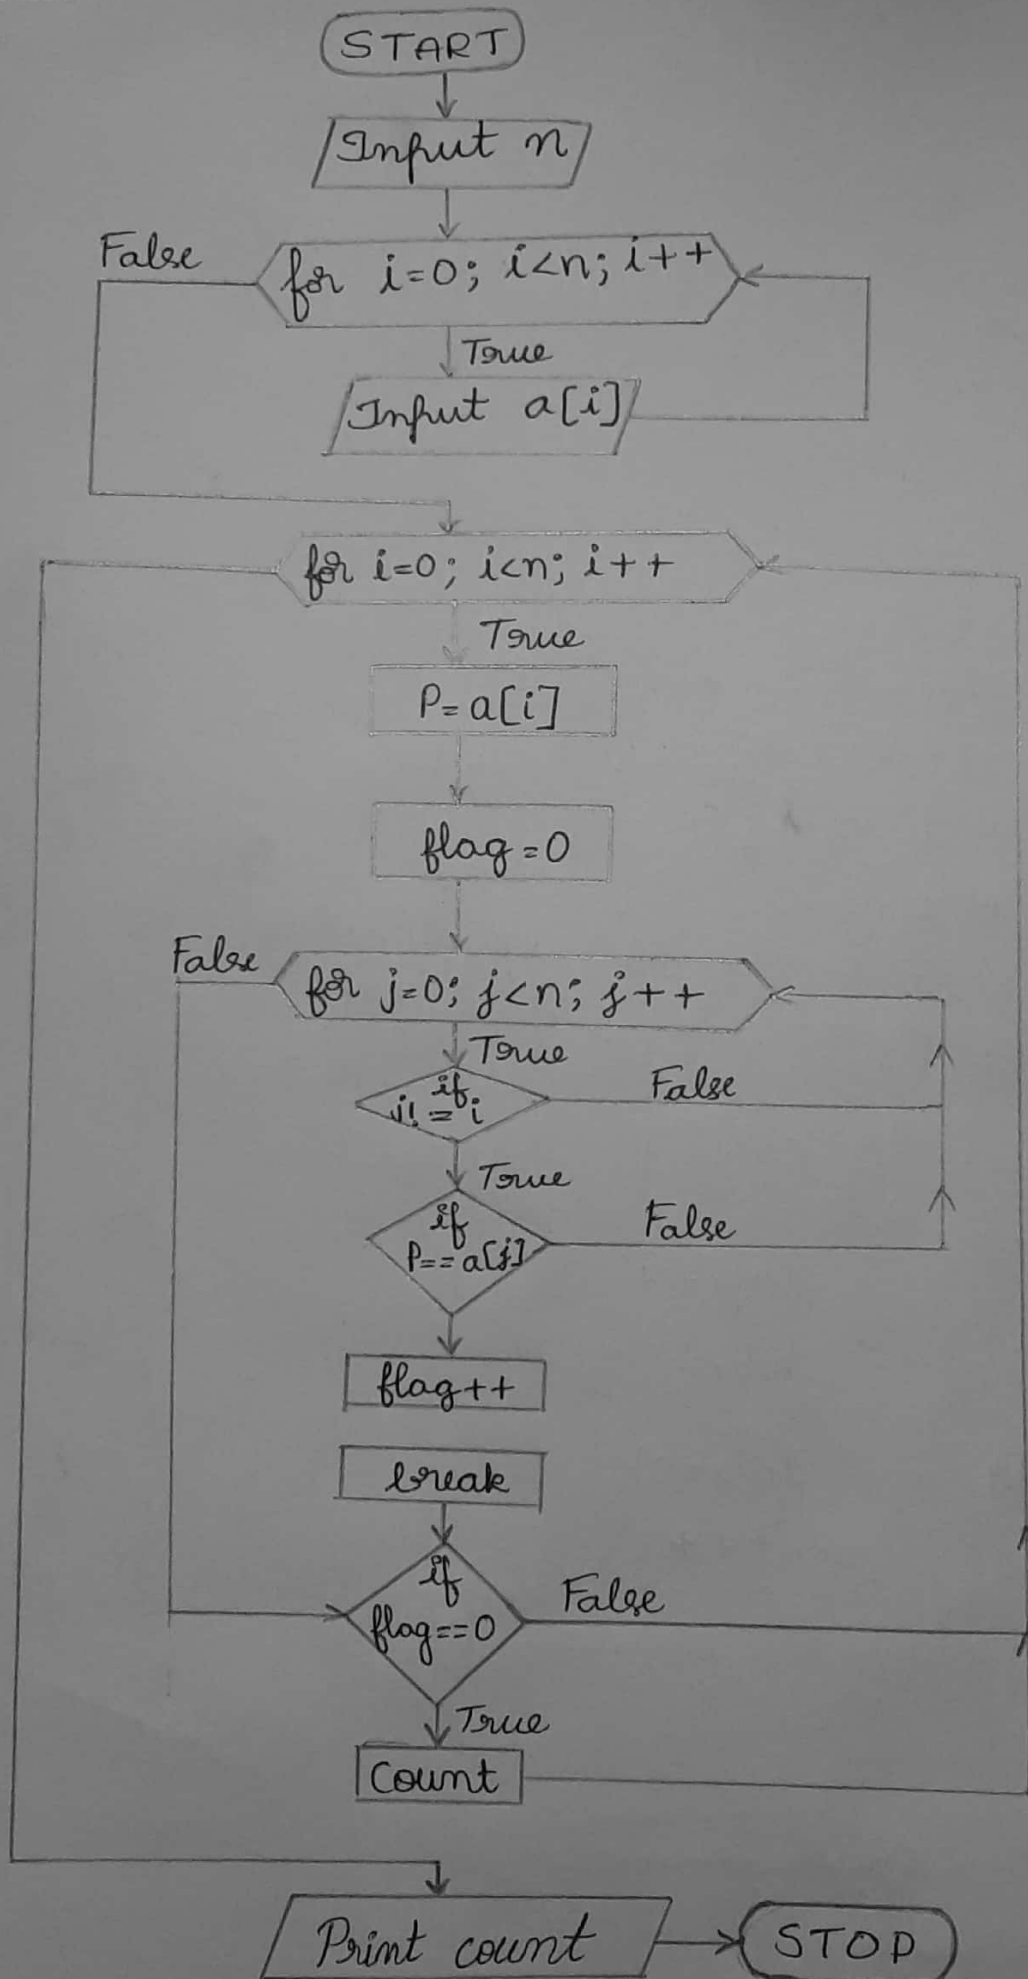 START
Input n
False
for i=0; i<n; i++
True
Input a[i]
for i=0; i<n; i++
True
P=a[i]
flag=0
False
for j=0; j<n; j++
True
if
j!=i
False
True
if
P==a[j]
False
flag++
break
if
flag==0
False
True
Count
Print count
STOP